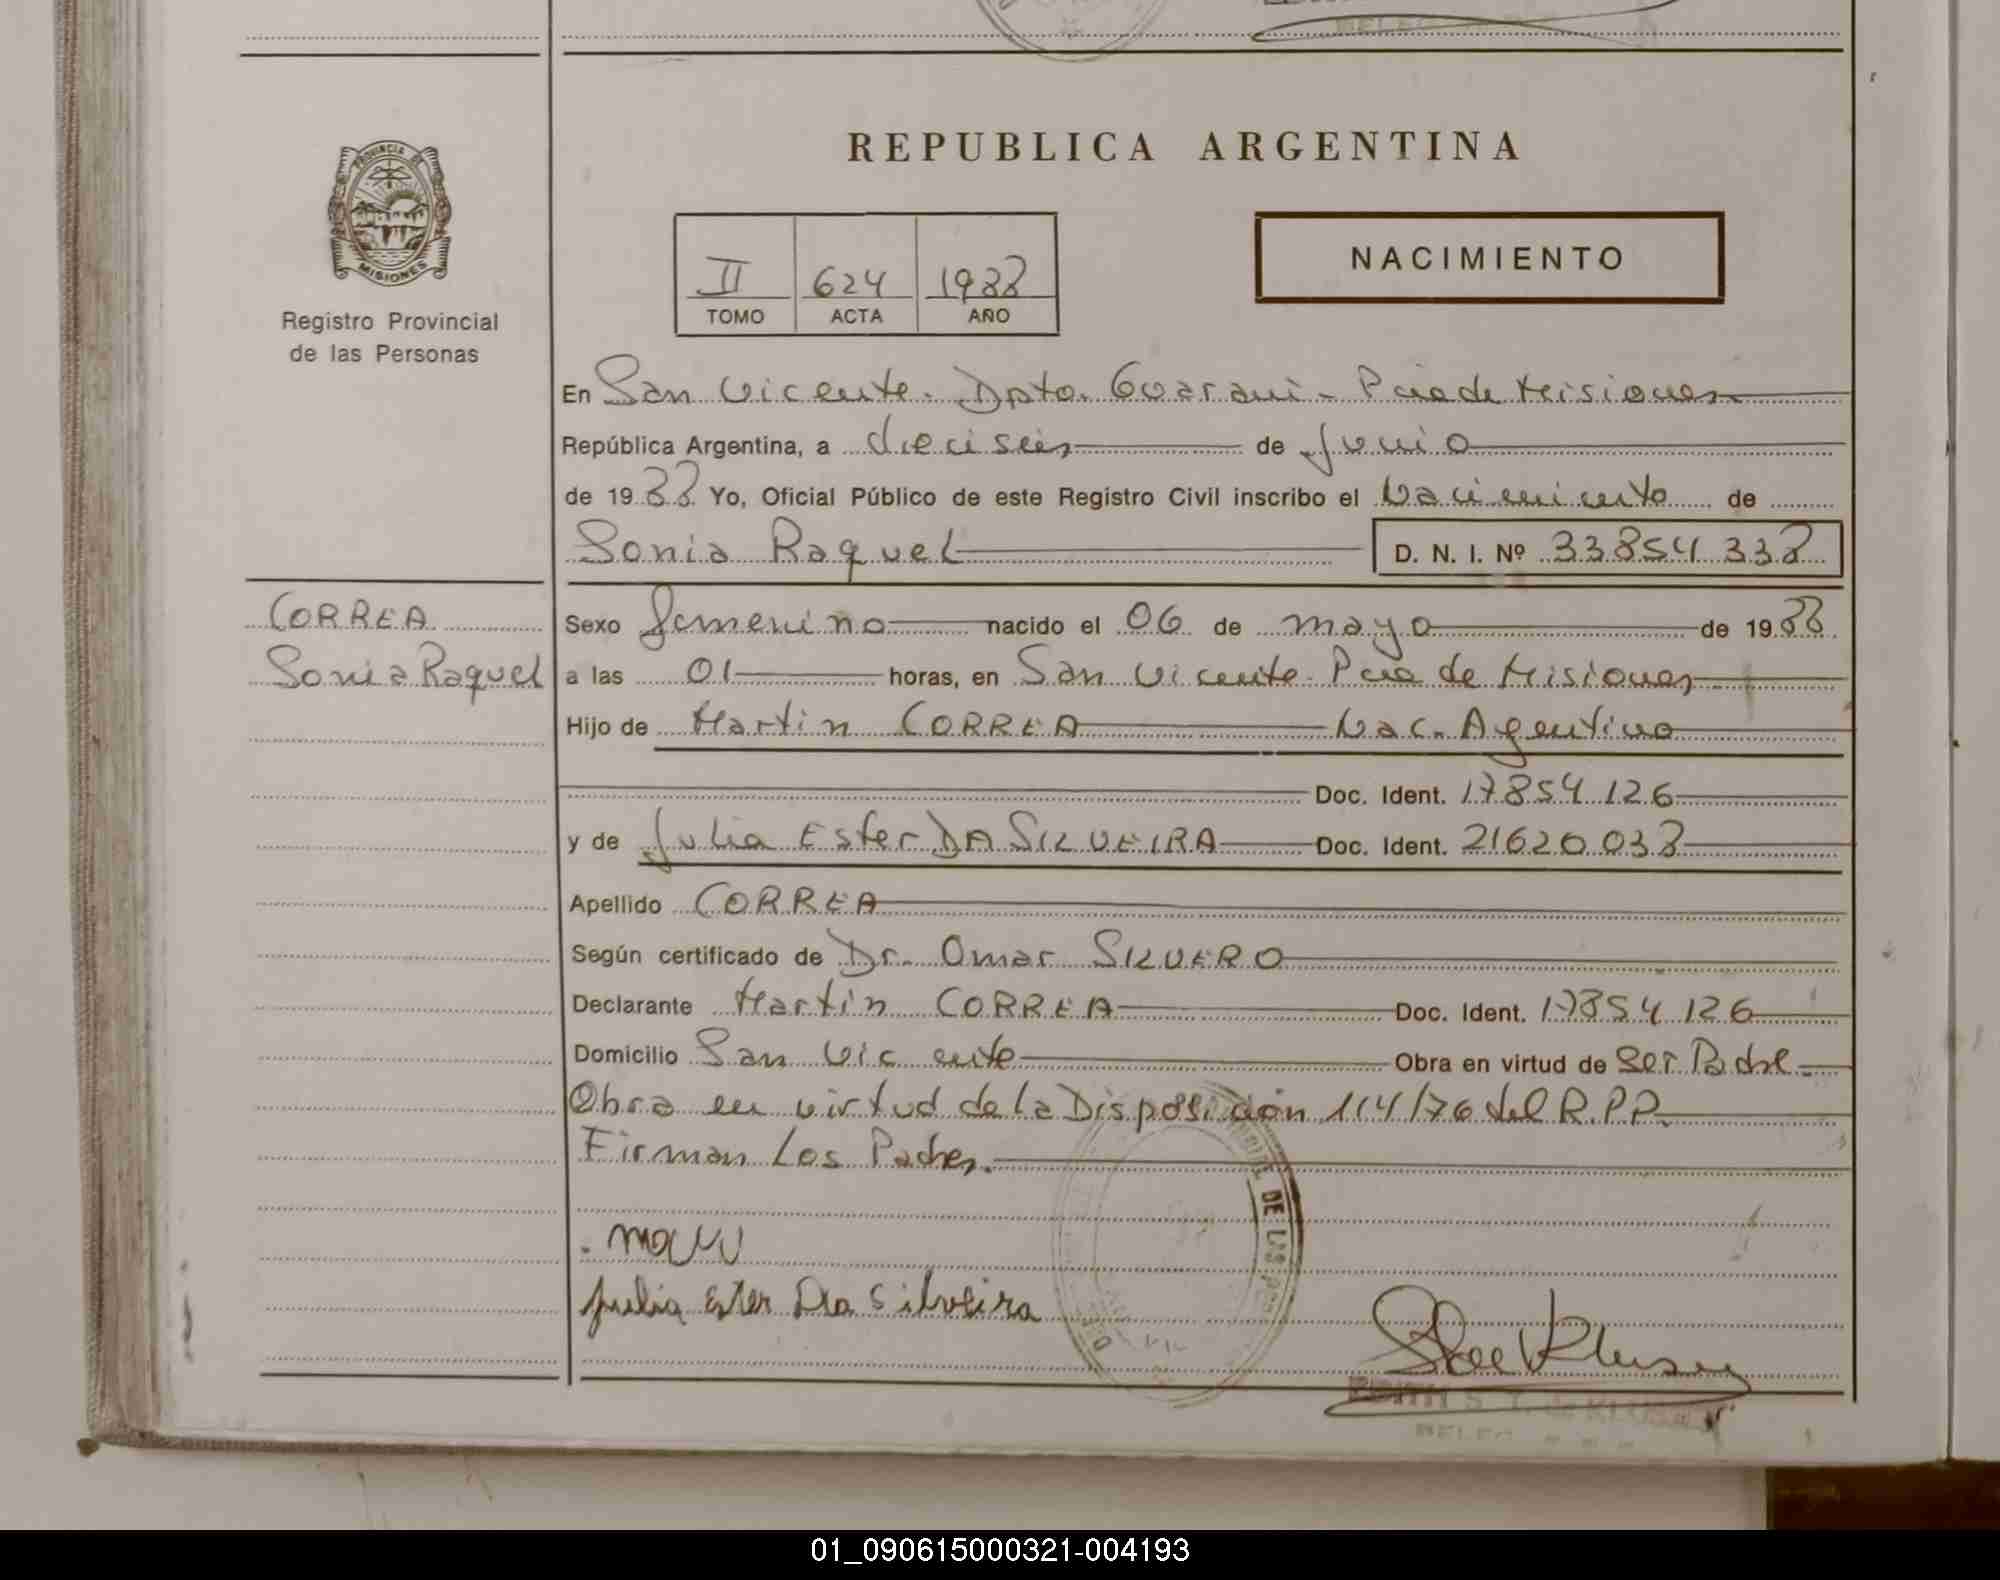 REPUBLICA ARGENTINA
PROVINCIA DE
MISIONES
Registro Provincial
de las Personas
II 624 1988
TOMO ACTA AÑO
NACIMIENTO
En San Vicente. Dpto. Guarani - Pcia de Misiones
República Argentina, a dieciseis de Junio
de 1988 Yo, Oficial Público de este Registro Civil inscribo el Nacimiento de
Sonia Raquel D. N. I. Nº 33854338
CORREA
Sonia Raquel
Sexo femenino nacido el 06 de mayo de 1988
a las 01 horas, en San Vicente - Pcia de Misiones
Hijo de Martin CORREA Nac. Agentino
Doc. Ident. 17854126
y de Julia Ester DA SILVEIRA Doc. Ident. 21620038
Apellido CORREA
Según certificado de Dr. Omar SILVERO
Declarante Martin CORREA Doc. Ident. 17854126
Domicilio San Vicente Obra en virtud de Ser Padre.
Obra en virtud de la Disposición 114/76 del R.P.P.
Firman Los Padres.
DE LAS
Julia Ester Da Silveira
01_090615000321-004193